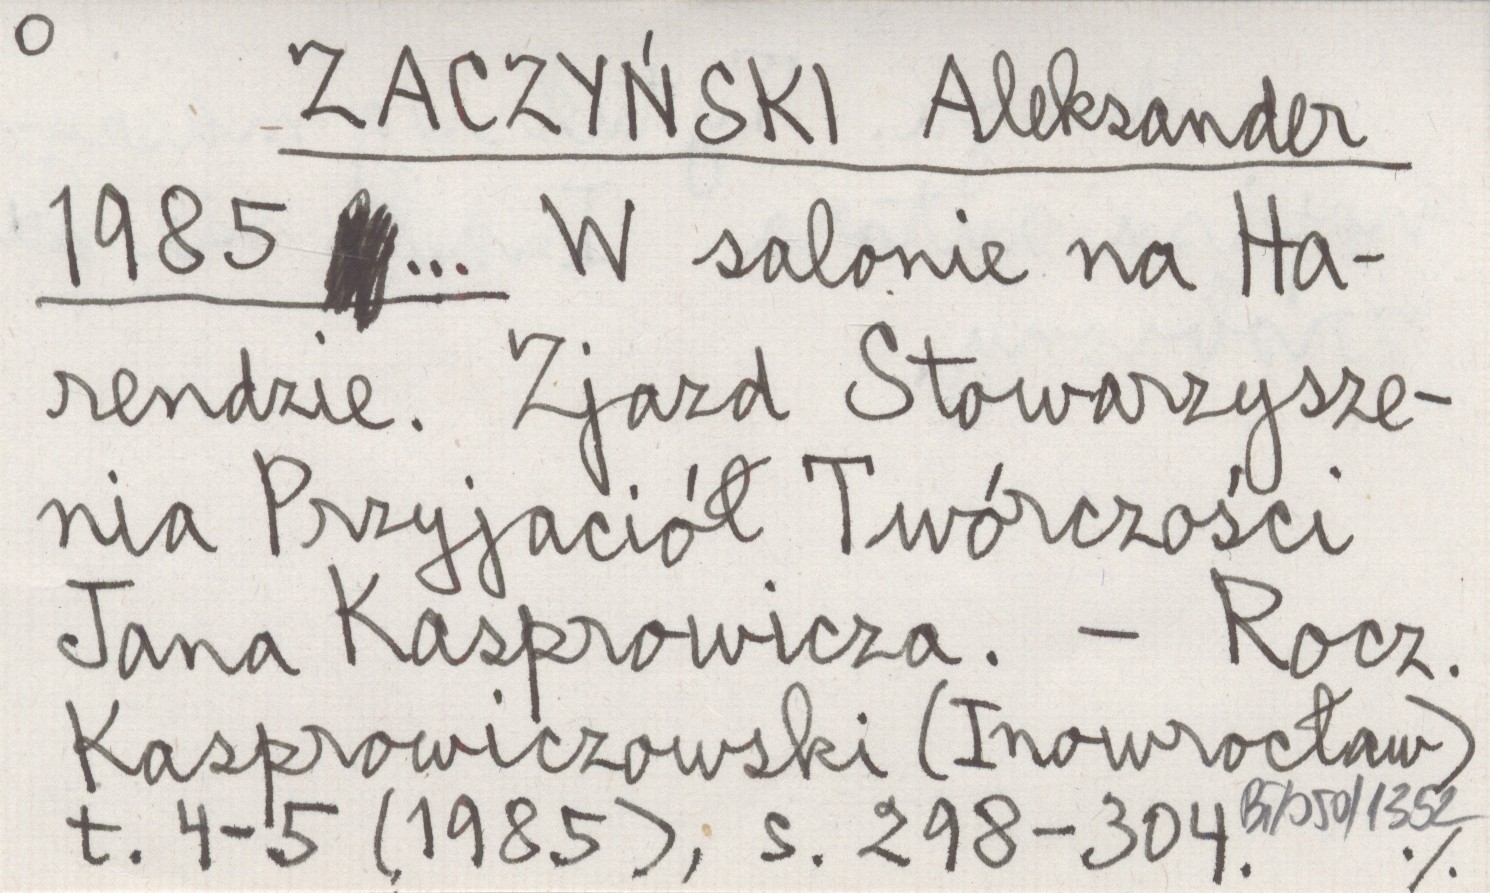 O
ZACZYŃSKI Aleksander
1985 ... W salonie na Ha-
rendzie. Zjazd Stowarzysze-
nia Przyjaciół Twórczości
Jana Kasprowicza. – Rocz.
Kasprowiczowski (Inowrocław)
t. 4-5 (1985), s. 298-304.
./.